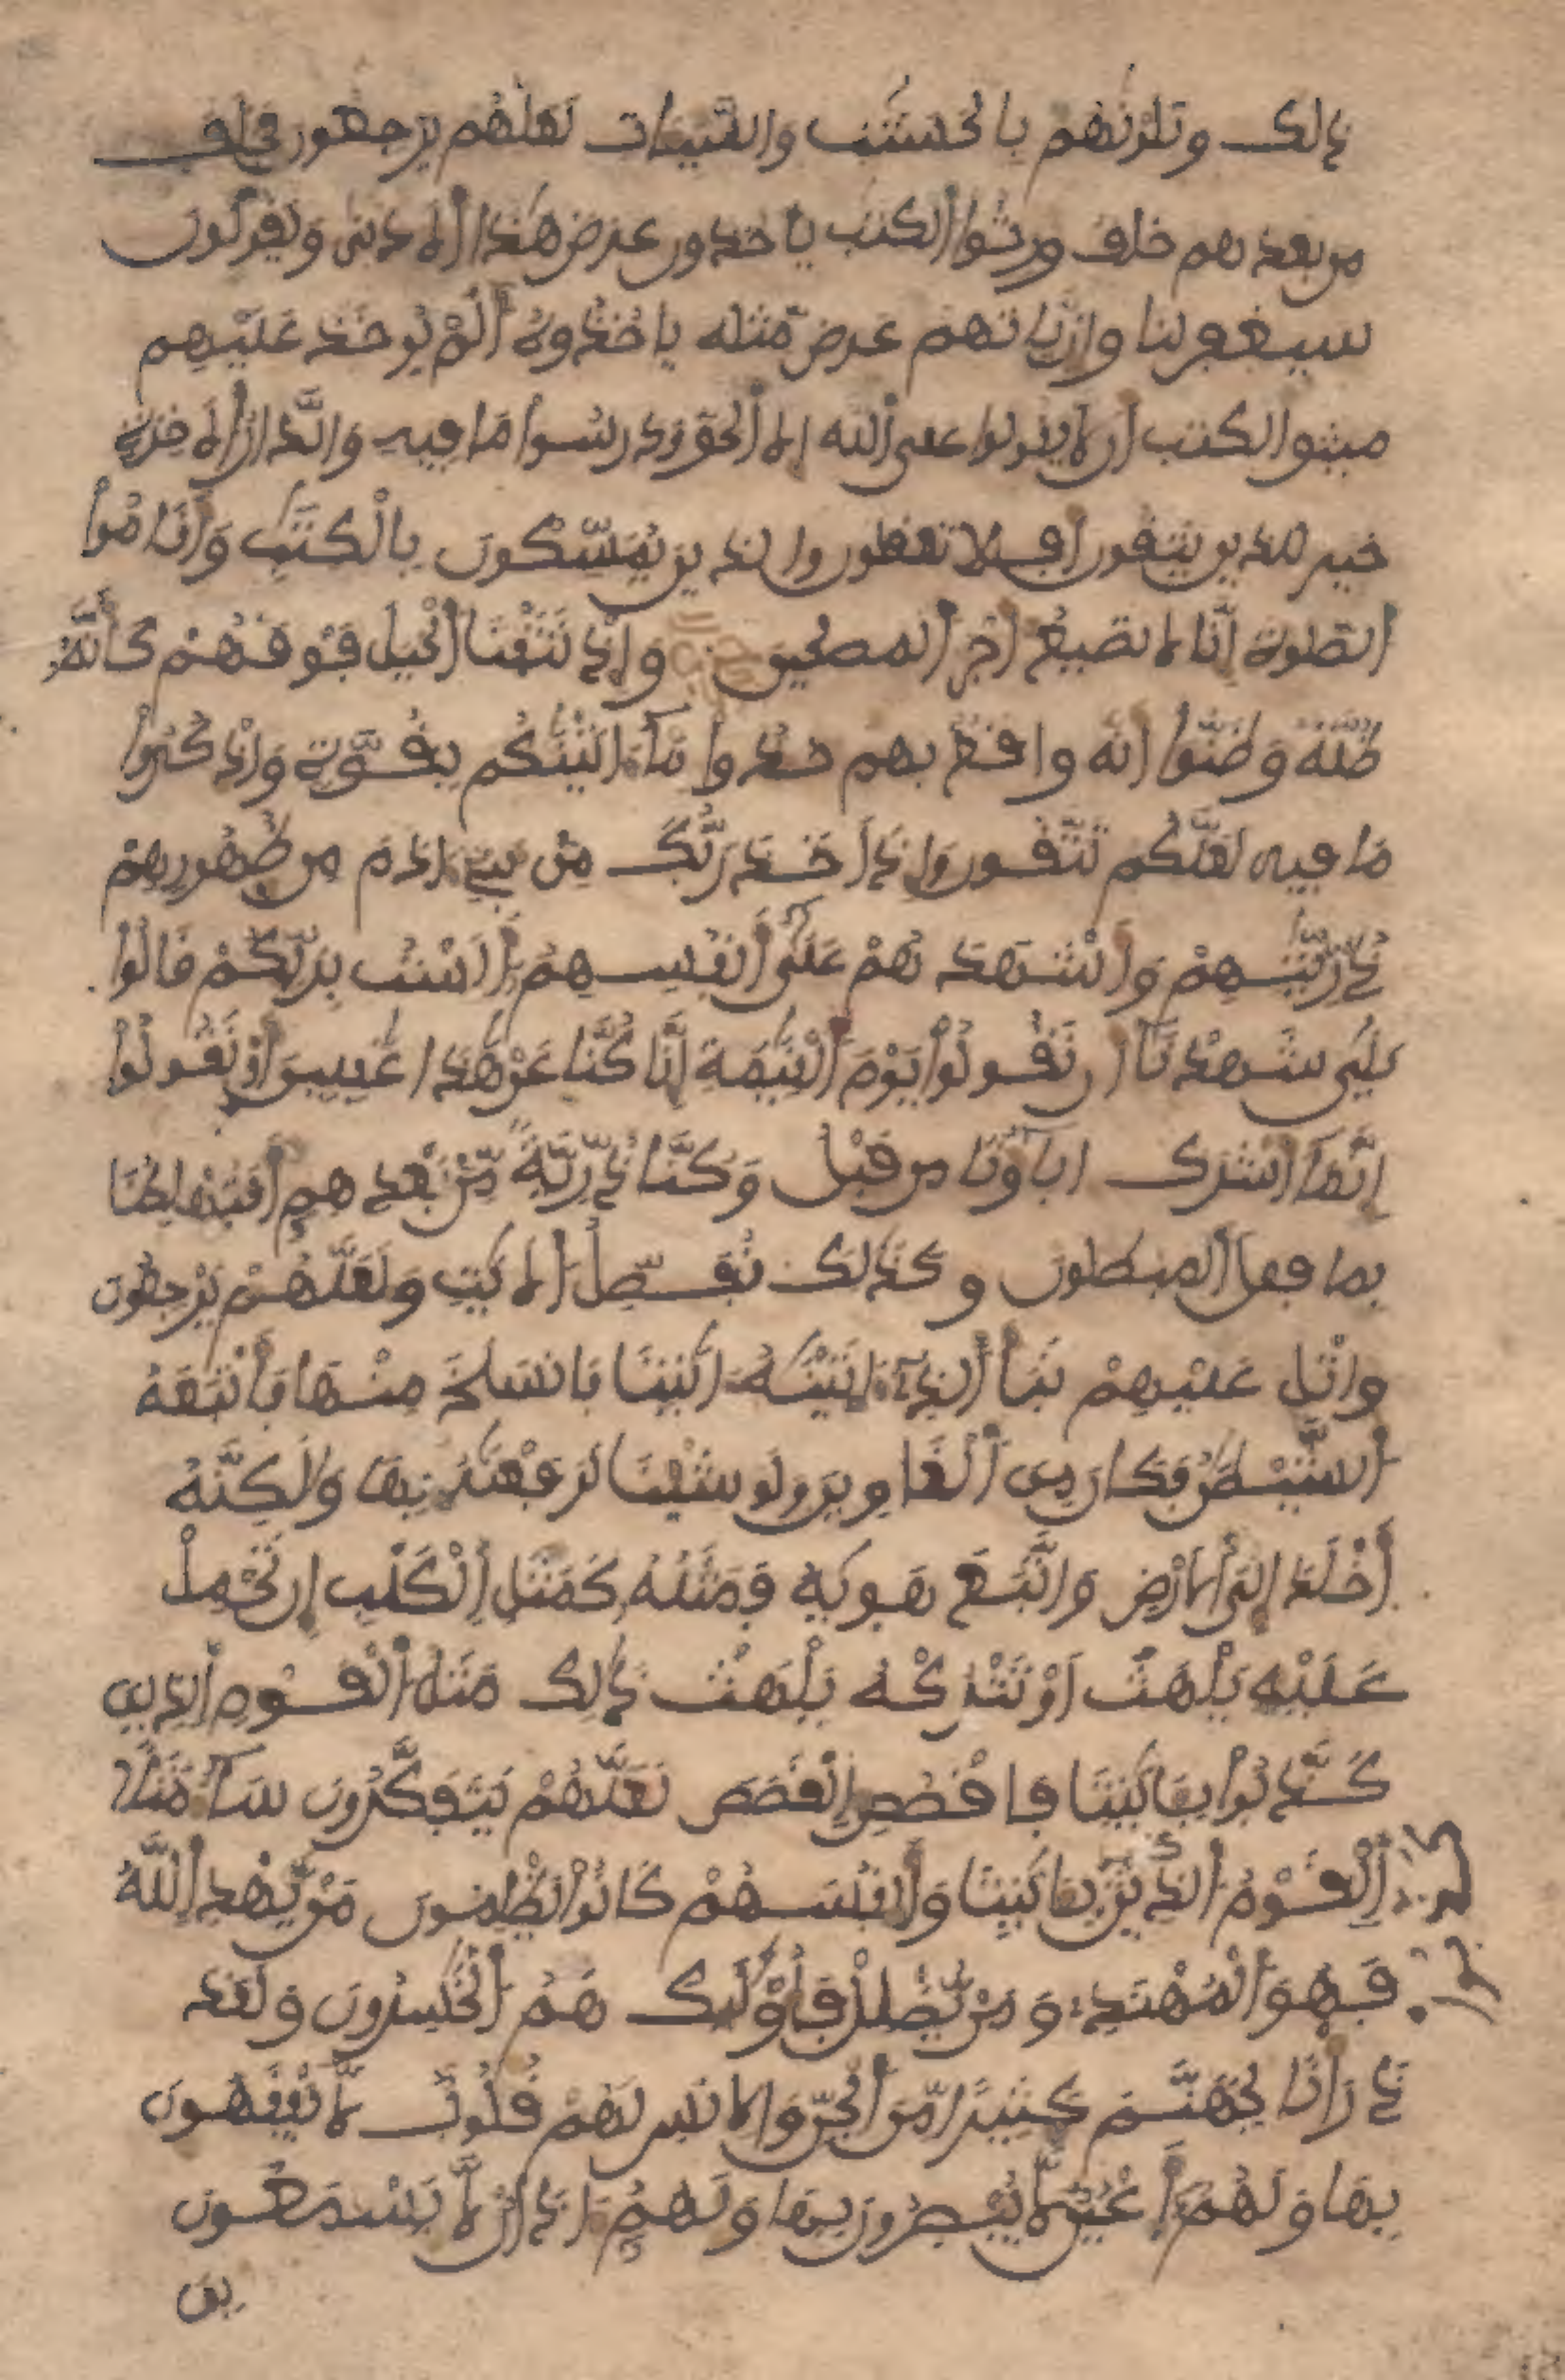 ذالك وبلونهم بالحسنت والسيات لعلهم يرجعون فخلف
من بعدهم خلف ورثوا الكتب ياخذون عرض هذا الادنى ويقولون
سيغفر لنا وان ياتهم عرض مثله ياخذوه ألم يوخذ عليهم
ميثق الكتب ان لا يقولوا على الله الا الحق ودرسوا ما فيه والدار الاخرة
خير للذين يتقون افلا تعقلون والذين يمسكون بالكتب وأقاموا
الصلوة انا لا نضيع اجر المصلحين وإذ نتقنا الجبل فوقهم كأنه
ظلة وظنوا انه واقع بهم خذوا ما اتينكم بقوة واذكروا
ما فيه لعلكم تتقون وإذ أخذ ربك من بني ادم من ظهورهم
ذريتهم وأشهدهم على أنفسهم ألست بربكم قالوا
بلى شهدنا ان تقولوا يوم القيمة إنا كنا عن هذا غفلين أو تقولوا
إنما أشرك اباؤنا من قبل وكنا ذرية من بعدهم أفتهلكنا
بما فعل المبطلون وكذلك نفصل الايت ولعلهم يرجعون
واتل عليهم نبأ الذي اتينه ايتنا فانسلخ منها فأتبعه
الشيطن فكان من الغاوين ولو شئنا لرفعنه بها ولكنه
أخلد إلى الارض واتبع هويه فمثله كمثل الكلب إن تحمل
عليه يلهث أو تتركه يلهث ذلك مثل القوم الذين
كذبوا بـايتنا فاقصص القصص لعلهم يتفكرون ساء مثلا
القوم الذين كذبوا بـايتنا وأنفسهم كانوا يظلمون من يهد الله
فهو المهتدي ومن يضلل فأولئك هم الخسرون ولقد
ذرأنا لجهنم كثيرا من الجن والانس لهم قلوب لا يفقهون
بها ولهم أعين لا يبصرون بها ولهم اذان لا يسمعون
بها